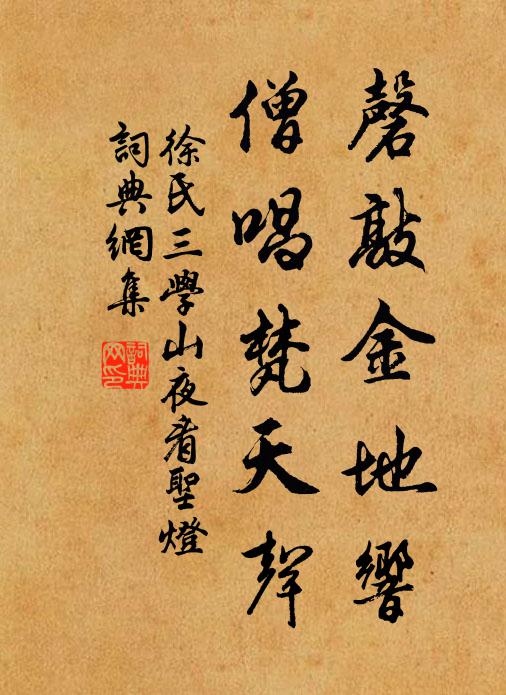 磬敲金地響
僧唱梵天聲
徐氏三學山夜看聖燈
詞典網集
詞典網印